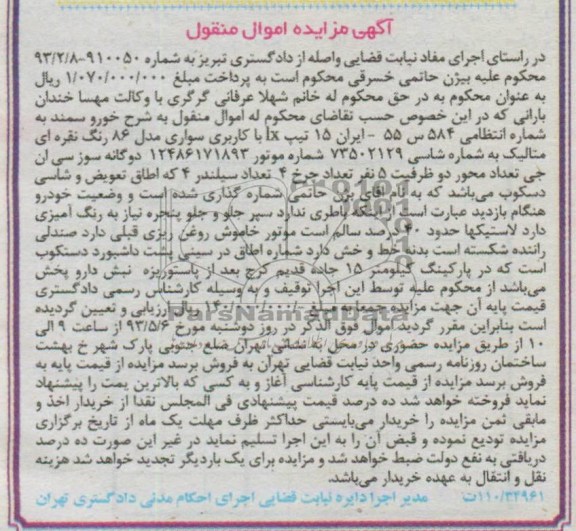 آگهی مزایده اموال منقول
در راستای اجرای مفاد نیابت قضایی واصله از دادگستری تبریز به شماره ۹۱۰۰۵۰-۹۳/۲/۸
محکوم علیه بیژن حاتمی خسرقی محکوم است به پرداخت مبلغ ۱/۰۷۰/۰۰۰/۰۰۰ ریال
به عنوان محکوم به در حق محکوم له خانم شهلا عرفانی گرگری با وکالت مهسا خندان
بارانی که در این خصوص حسب تقاضای محکوم له اموال منقول به شرح خورو سمند به
شماره انتظامی ۵۸۴ س ۵۵ - ایران ۱۵ تیپ lx با کاربری سواری مدل ۸۶ رنگ نقره ای
متالیک به شماره شاسی ۷۳۵۰۲۱۲۹ شماره موتور ۱۲۴۸۶۱۷۱۸۹۳ دوگانه سوز سی ان
جی تعداد محور دو ظرفیت ۵ نفر تعداد چرخ ۴ تعداد سیلندر ۴ که اطاق تعویض و شاسی
دسکوب می‌باشد که به نام آقای بیژن حاتمی شماره گذاری شده است و وضعیت خودرو
هنگام بازدید عبارت است از اینکه باطری ندارد سپر جلو و جلو پنجره نیاز به رنگ آمیزی
دارد لاستیکها حدود ۴۰ درصد سالم است موتور خاموش روغن ریزی قبلی دارد صندلی
راننده شکسته است بدنه خط و خش دارد شماره اطاق در سینی پشت داشبورد دستکوب
است که در پارکینگ کیلومتر ۱۵ جاده قدیم کرج بعد از پاستوریزه نبش دارو پخش
می‌باشد از محکوم علیه توسط این اجرا توقیف و به وسیله کارشناس رسمی دادگستری
قیمت پایه آن جهت مزایده جمعا به مبلغ ریال ارزیابی و تعیین گردیده
است بنابراین مقرر گردید اموال فوق الذکر در روز دوشنبه مورخ ۹۳/۵/۶ از ساعت ۹ الی
۱۰ از طریق مزایده حضوری در محل به نشانی تهران ضلع جنوبی پارک شهر خ بهشت
ساختمان روزنامه رسمی واحد نیابت قضایی تهران به فروش برسد مزایده از قیمت پایه به
فروش برسد مزایده از قیمت پایه کارشناسی آغاز و به کسی که بالاترین یمت را پیشنهاد
نماید فروخته خواهد شد ده درصد قیمت پیشنهادی فی المجلس نقدا از خریدار اخذ و
مابقی ثمن مزایده را خریدار می‌بایستی حداکثر ظرف مهلت یک ماه از تاریخ برگزاری
مزایده تودیع نموده و قبض آن را به این اجرا تسلیم نماید در غیر این صورت ده درصد
دریافتی به نفع دولت ضبط خواهد شد و مزایده برای یک باردیگر تجدید خواهد شد هزینه
نقل و انتقال به عهده خریدار می‌باشد.
۱۱۰/۳۴۹۶۱ت مدیر اجرا دایره نیابت قضایی اجرای احکام مدنی دادگستری تهران
ParsNamadData